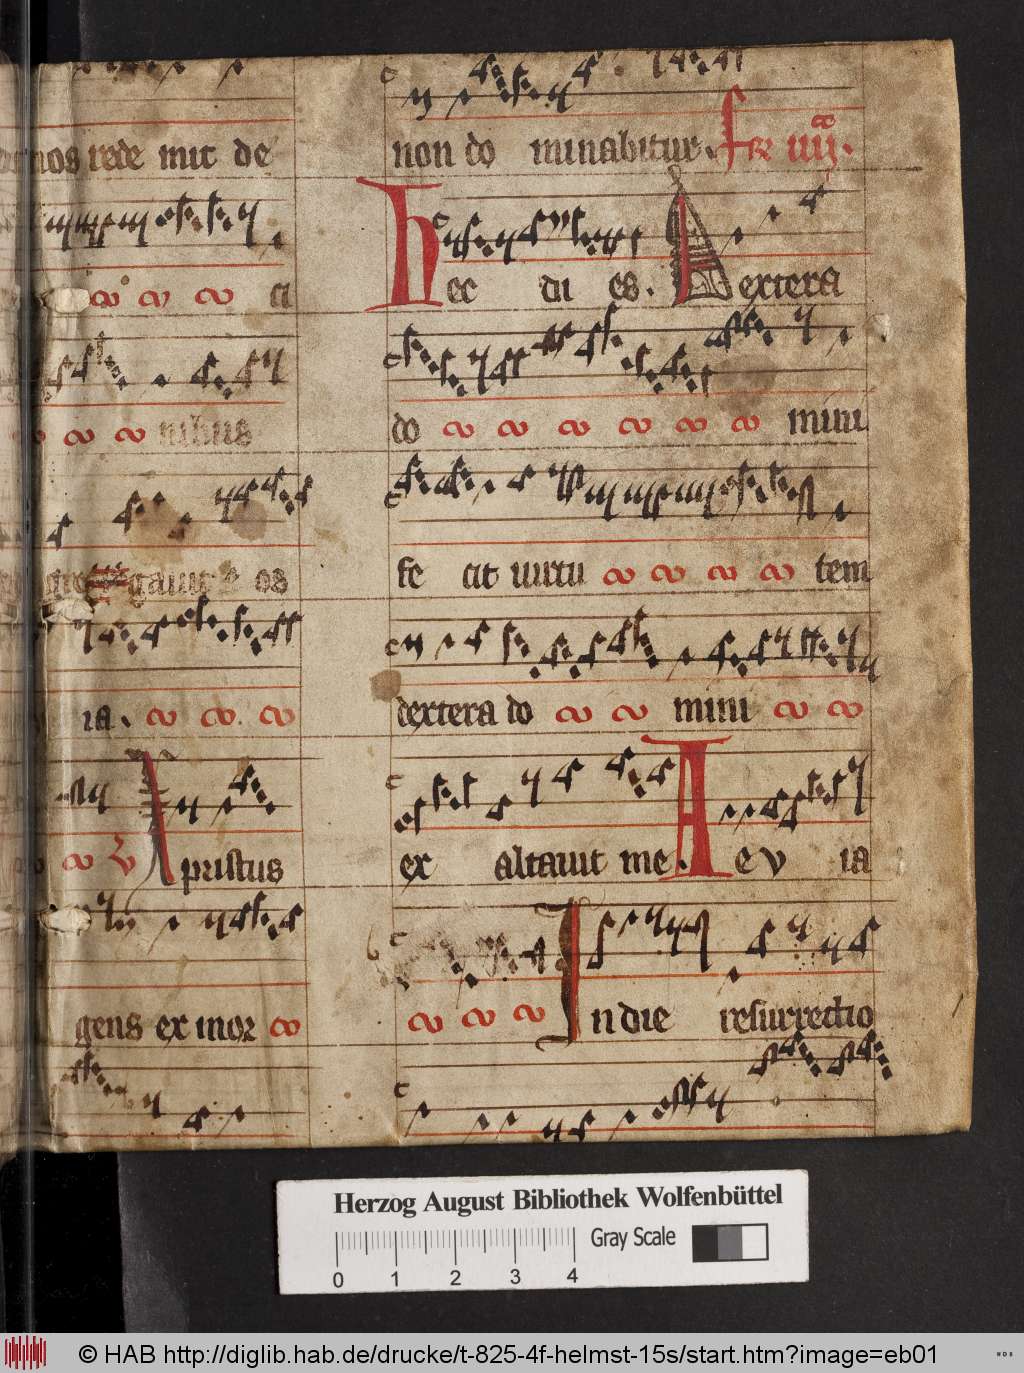 nos rede mit de
ci
nibus
gauit os
ia.
V Xpristus
gens ex mor
non do minabitur. fer iiij.
Hec di es. Dextera
do mini
fe cit uirtu tem
dextera do mini
ex altauit me. Aeuia
In die resurrectio
Herzog August Bibliothek Wolfenbüttel
Gray Scale
0 1 2 3 4
© HAB http://diglib.hab.de/drucke/t-825-4f-helmst-15s/start.htm?image=eb01